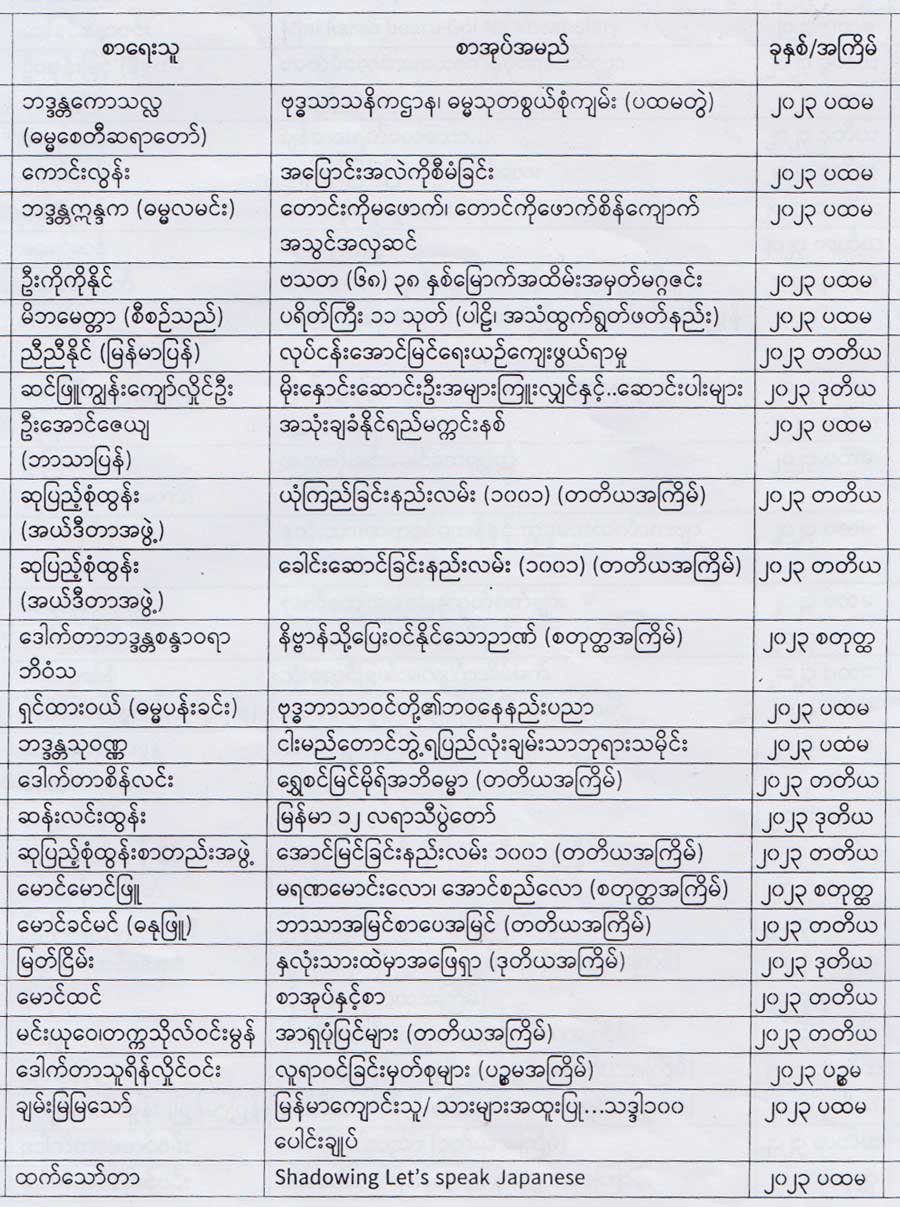 စာရေးသူ စာအုပ်အမည် ခုနှစ်/အကြိမ်
ဘဒ္ဒန္တကောသလ္လ ဗုဒ္ဓသာသနိကဌာန၊ ဓမ္မသုတစွယ်စုံကျမ်း (ပထမတွဲ) ၂၀၂၃ ပထမ
(ဓမ္မစေတီဆရာတော်)
ကောင်းလွန်း အပြောင်းအလဲကိုစီမံခြင်း ၂၀၂၃ ပထမ
ဘဒ္ဒန္တဣန္ဒက (ဓမ္မလမင်း) တောင်းကိုမဖောက်၊ တောင်ကိုဖောက်စိန်ကျောက် ၂၀၂၃ ပထမ
အသွင်အလှဆင်
ဦးကိုကိုနိုင် ဗသတ (၆၈) ၃၈ နှစ်မြောက်အထိမ်းအမှတ်မဂ္ဂဇင်း ၂၀၂၃ ပထမ
မိဘမေတ္တာ (စီစဉ်သည်) ပရိတ်ကြီး ၁၁ သုတ် (ပါဠိ၊ အသံထွက်ရွတ်ဖတ်နည်း) ၂၀၂၃ ပထမ
ညီညီနိုင် (မြန်မာပြန်) လုပ်ငန်းအောင်မြင်ရေးယဉ်ကျေးဖွယ်ရာမှု ၂၀၂၃ တတိယ
ဆင်ဖြူကျွန်းကျော်လှိုင်ဦး မိုးနှောင်းဆောင်းဦးအများကြူးလျှင်နှင့်..ဆောင်းပါးများ ၂၀၂၃ ဒုတိယ
ဦးအောင်ဇေယျ အသုံးချခံနိုင်ရည်မက္ကင်းနစ် ၂၀၂၃ ပထမ
(ဘာသာပြန်)
ဆုပြည့်စုံထွန်း ယုံကြည်ခြင်းနည်းလမ်း (၁၀၀၁) (တတိယအကြိမ်) ၂၀၂၃ တတိယ
(အယ်ဒီတာအဖွဲ့)
ဆုပြည့်စုံထွန်း ခေါင်းဆောင်ခြင်းနည်းလမ်း (၁၀၀၁) (တတိယအကြိမ်) ၂၀၂၃ တတိယ
(အယ်ဒီတာအဖွဲ့)
ဒေါက်တာဘဒ္ဒန္တစန္ဒာဝရာ နိဗ္ဗာန်သို့ပြေးဝင်နိုင်သောဉာဏ် (စတုတ္ထအကြိမ်) ၂၀၂၃ စတုတ္ထ
ဘိဝံသ
ရှင်ထားဝယ် (ဓမ္မပန်းခင်း) ဗုဒ္ဓဘာသာဝင်တို့၏ဘဝနေနည်းပညာ ၂၀၂၃ ပထမ
ဘဒ္ဒန္တသုဝဏ္ဏ ငါးမည်တောင်ဘွဲ့ရပြည်လုံးချမ်းသာဘုရားသမိုင်း ၂၀၂၃ ပထမ
ဒေါက်တာစိန်လင်း ရွှေစင်မြင်မိုရ်အဘိဓမ္မာ (တတိယအကြိမ်) ၂၀၂၃ တတိယ
ဆန်းလင်းထွန်း မြန်မာ ၁၂ လရာသီပွဲတော် ၂၀၂၃ ဒုတိယ
ဆုပြည့်စုံထွန်းစာတည်းအဖွဲ့ အောင်မြင်ခြင်းနည်းလမ်း ၁၀၀၁ (တတိယအကြိမ်) ၂၀၂၃ တတိယ
မောင်မောင်ဖြူ မရဏမောင်းလော၊ အောင်စည်လော (စတုတ္ထအကြိမ်) ၂၀၂၃ စတုတ္ထ
မောင်ခင်မင် (ဓနုဖြူ) ဘာသာအမြင်စာပေအမြင် (တတိယအကြိမ်) ၂၀၂၃ တတိယ
မြတ်ငြိမ်း နှလုံးသားထဲမှာအဖြေရှာ (ဒုတိယအကြိမ်) ၂၀၂၃ ဒုတိယ
မောင်ထင် စာအုပ်နှင့်စာ ၂၀၂၃ တတိယ
မင်းယုဝေ၊တက္ကသိုလ်ဝင်းမွန် အာရှပုံပြင်များ (တတိယအကြိမ်) ၂၀၂၃ တတိယ
ဒေါက်တာသူရိန်လှိုင်ဝင်း လူရာဝင်ခြင်းမှတ်စုများ (ပဉ္စမအကြိမ်) ၂၀၂၃ ပဉ္စမ
ချမ်းမြမြသော် မြန်မာကျောင်းသူ/ သားများအထူးပြု...သဒ္ဒါ၁၀၀ ၂၀၂၃ ပထမ
ပေါင်းချုပ်
ထက်သော်တာ Shadowing Let's speak Japanese ၂၀၂၃ ပထမ